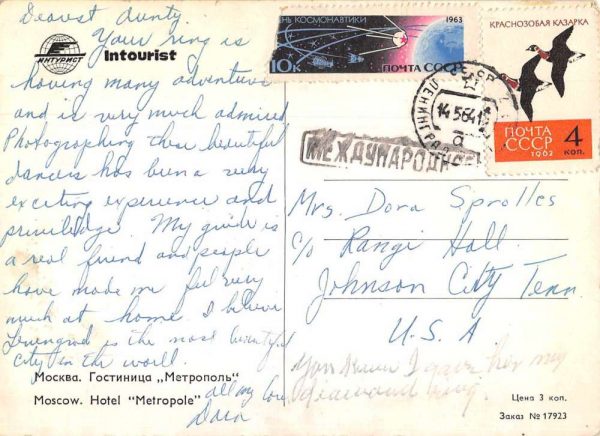 Dearest Aunty.
Your ring is
having many adventures
and is very much admired
Photographing these beautiful
dancers has been a very
exciting experience and
priviledge. My guide is
a real friend and people
have made me feel very
much at home. I believe
Leningrad is the most beautiful
city in the world.
all my love
Dora
ИНТУРИСТ
Intourist
Москва. Гостиница „Метрополь“
Moscow. Hotel "Metropole"
ДЕНЬ КОСМОНАВТИКИ
1963
10К
ПОЧТА СССР
КРАСНОЗОБАЯ КАЗАРКА
ПОЧТА
СССР
1962
4
КОП.
СССР
ЛЕНИНГРАД
14.5.64
а
МЕЖДУНАРОДНОЕ
Mrs. Dora Sprolles
c/o Rangi Hall
Johnson City Tenn
U.S.A
You know I gave her my
diamond ring.
Цена 3 коп.
Заказ № 17923